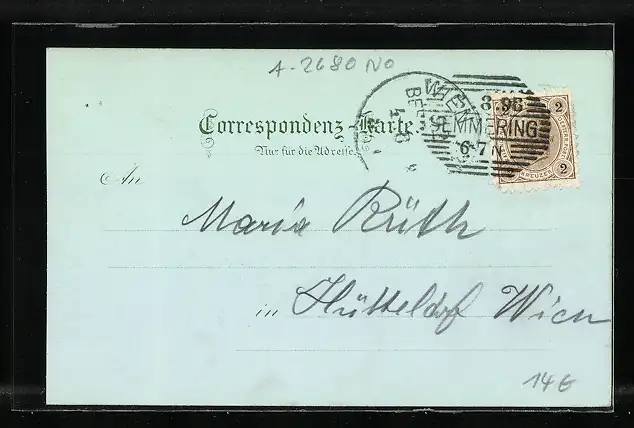 A-2680 NO
Correspondenz-Karte.
Nur für die Adresse.
WIEN
3.98
SEMMERING
6-7 N
2
2
KREUZER
An
Maria Rüth
in Hütteldorf Wien
14 €